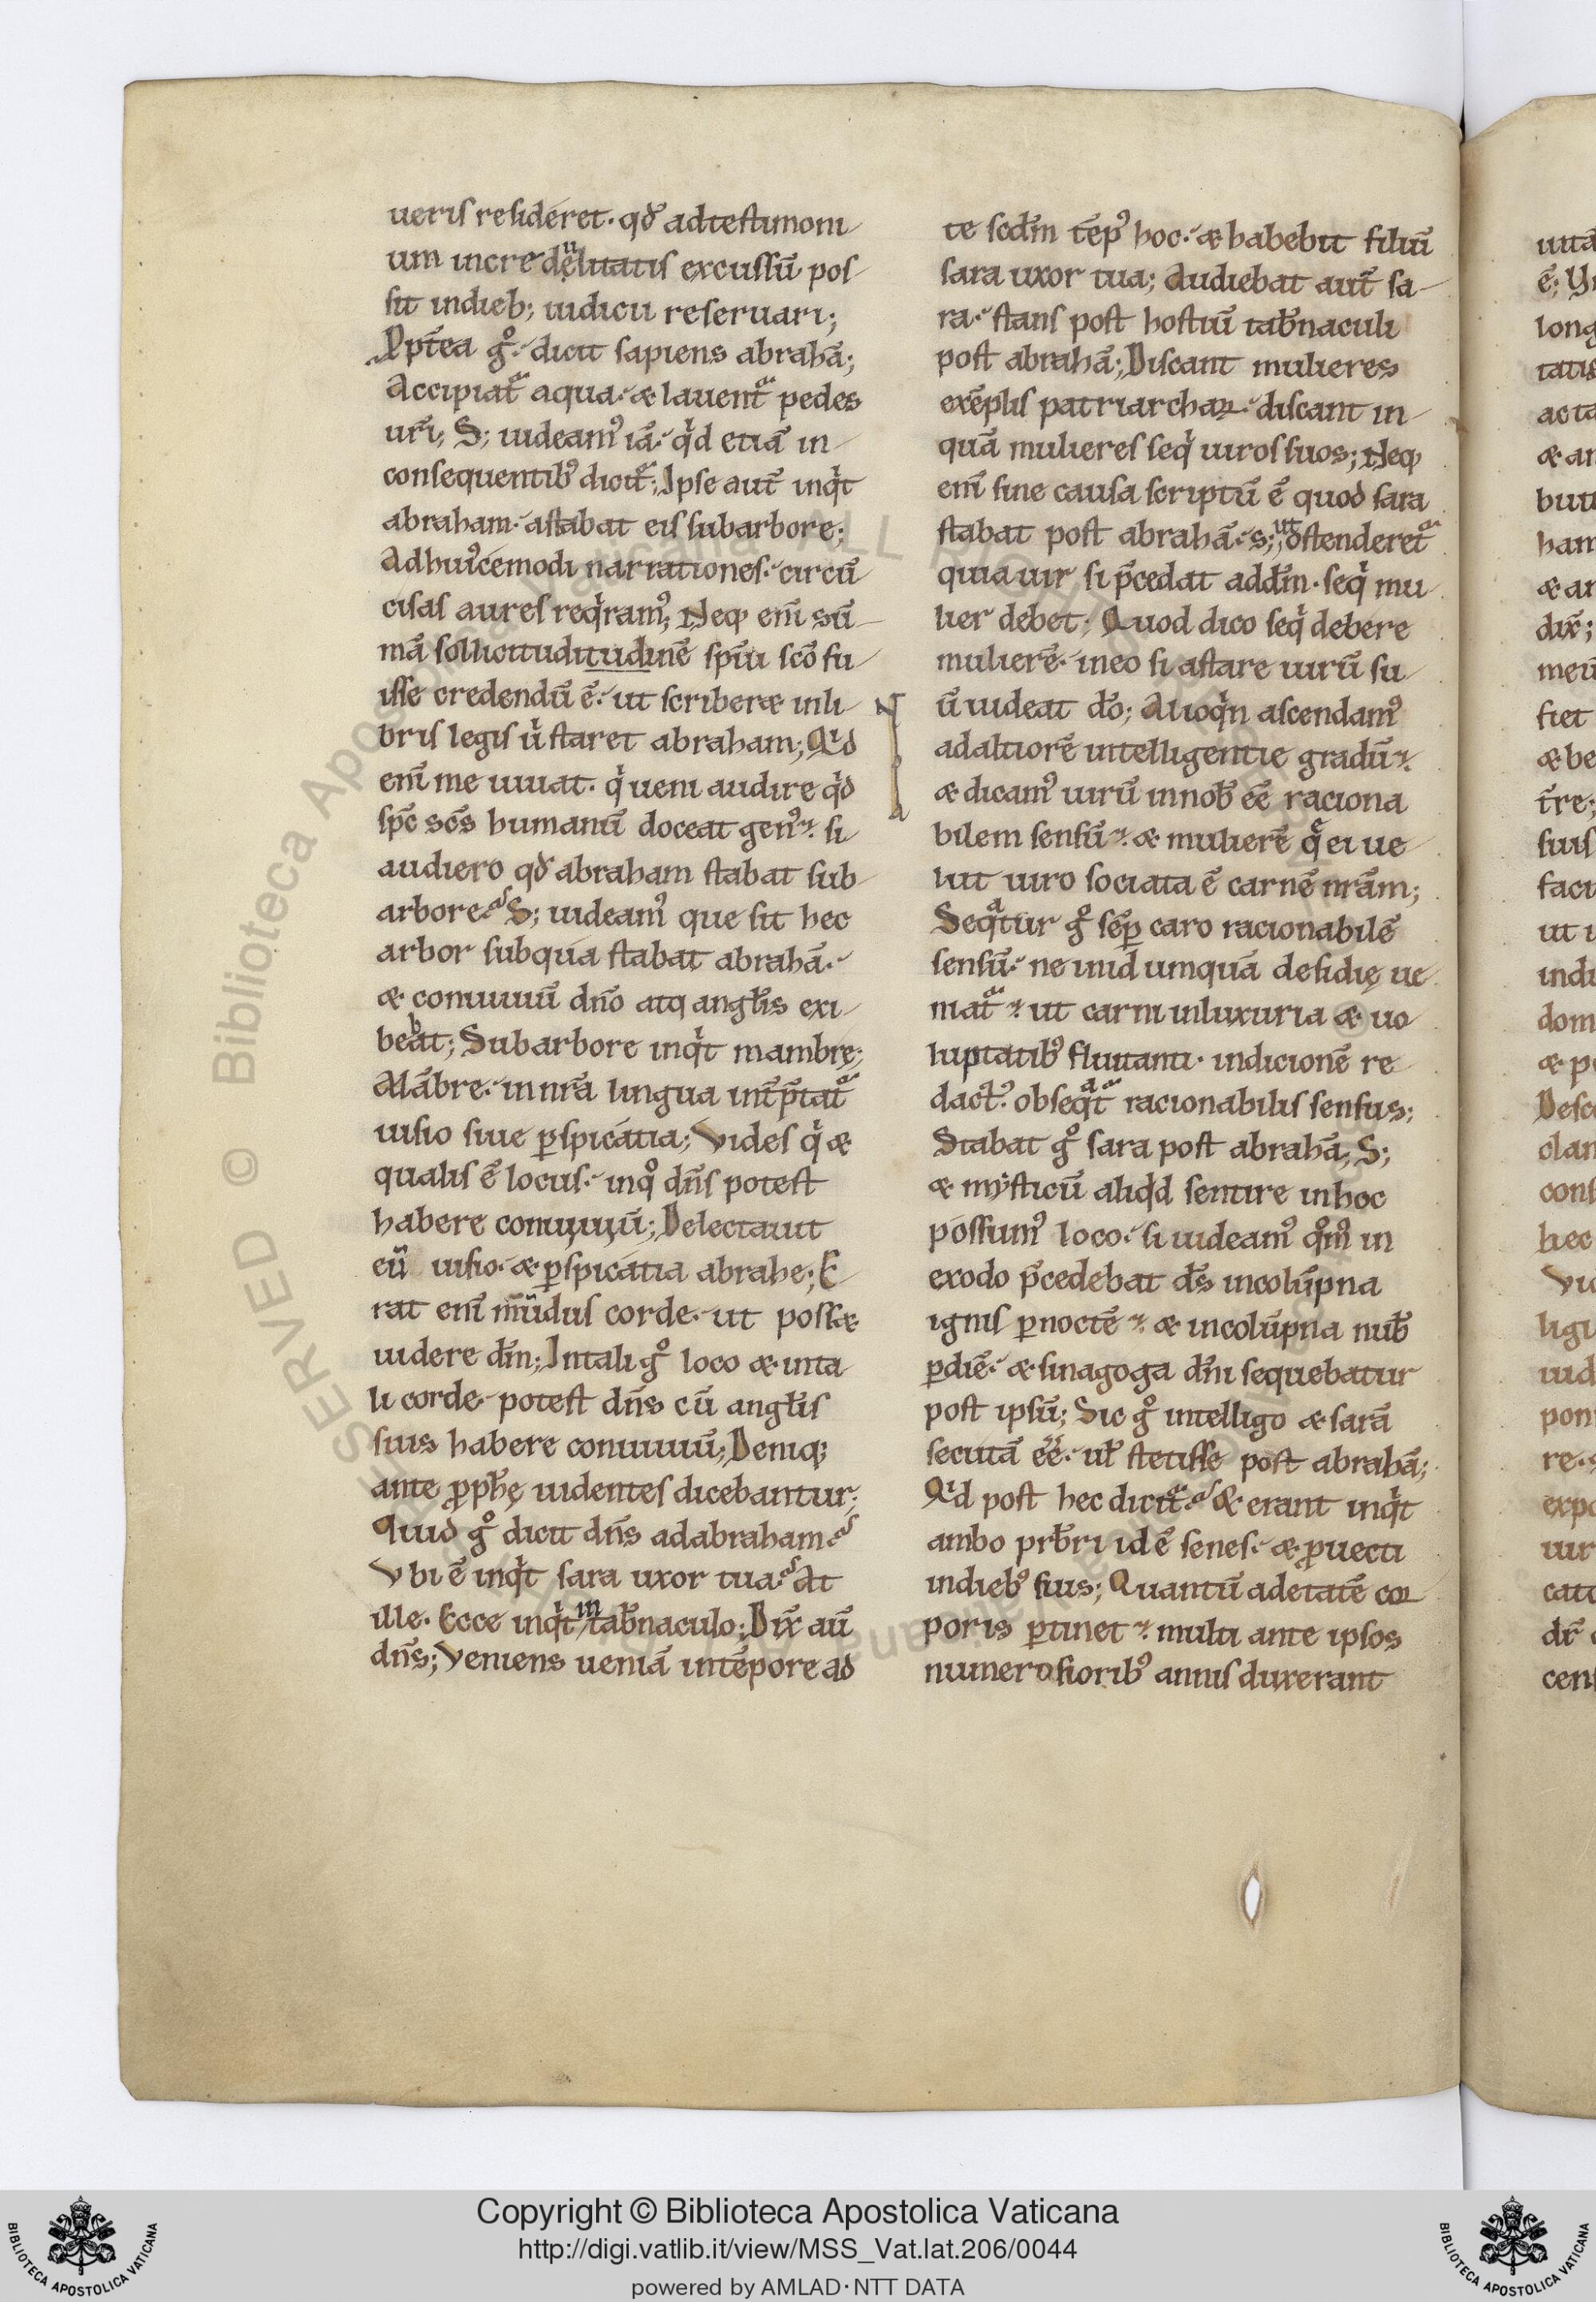 ueris resideret. qđ ad testimoni
um incredęlitatis excussū pos
sit in dieb; iudicii reseruari;
Ppt̄ea g°. dicit sapiens abrahā;
Accipiat᷑ aqua. æ lauent᷑ pedes
ur̄i; S; uideam᾽ iā. qͥd etiā in
consequentib᾽ dicit᷑; Ipse aut̄ inqͥt
abraham. astabat eis sub arbore;
Ad hui᾽cemodi narrationes. circū
cisas aures reqͥram᾽; Neq; eni̅ sū
mā sollicitudi tudinē sp̄ui sc̄o fu
isse credendū ē. ut scriberæ in li
bris legis uͥ staret abraham; Qͥd
eni̅ me iuuat. qͥ ueni audire qͥd
sp̄c sc̄s humanū doceat gen᾽. si
audiero qđ abraham stabat sub
arbore. S; uideam᾽ que sit hec
arbor sub qua stabat abrahā.
æ conuiuiū dn̄o atq; angłis exi
beat; Sub arbore inqͥt mambrę;
Mābre. in nr̄a lingua int̄p̄tat᷑
uisio siue p̱spicatia; Vides qͥ æ
qualis ē locus. in q° dn̄s potest
habere conuiuiū; Delectauit
eū uisio. æ p̱spicatia abrahe; E
rat eni̅ mūdus corde. ut possæ
uidere dm̄; In tali g° loco æ in ta
li corde. potest dn̄s cū angłis
suis habere conuiuiū; Deniq;
ante p̱ph̄ę uidentes dicebantur;
Quid g° dicit dn̄s ad abraham
Vbi ē inqͥt sara uxor tua. At
ille. Ecce inqͥt in tab̄naculo; Dix̄ aū
dn̄s; Veniens ueniā in tēpore ad
N
d
te scđm tēp᾽ hoc. æ habebit filiū
sara uxor tua; Audiebat aut̄ sa
ra. stans post hostiū tab̄naculi
post abrahā; Discant mulieres
exēplis patriarchaꝝ. discant in
quā mulieres seqͥ uiros suos; Neq;
eni̅ sine causa scriptū ē quod sara
stabat post abrahā. s; ut ostenderet᷑
quia uir si p̄cedat ad dm̄. seqͥ mu
lier debet; Quod dico seqͥ debere
mulierē. in eo si astare uirū su
ū uideat dō; Alioqͥn ascendam᾽
ad altiorē intelligentie gradū.
æ dicam᾽ uirū in nob̄ eē raciona
bilem sensū. æ mulierē q̄ ei ue
lut uiro sociata ē carnē nr̄am;
Seqᵃtur g° sēp̱ caro racionabilē
sensū. ne in id umquā desidię ue
niat᷑. ut carni in luxuria æ uo
luptatib᾽ fluitanti. in dicionē re
dact᾽. obseqᵃt᷑ racionabilis sensus;
Stabat g° sara post abrahā; S;
æ mẏsticū aliqͥd sentire in hoc
possum᾽ loco. si uideam᾽ q°m° in
exodo p̄cedebat ds̄ in colūpna
ignis p̱ noctē. æ in colūpna nub̄
p̱ diē. æ sinagoga dn̄i sequebatur
post ipsū; Sic g° intelligo æ sarā
secutā eē. uł stetisse post abrahā;
Qͥd post hec dicit᷑. Et erant inqͥt
ambo prb̄ri id ē senes. æ p̱uecti
in dieb᾽ suis; Quantū ad etatē coꝛ
poris p̱tinet. multi ante ipsos
numerosiorib᾽ annis duxerant
uita
ē; Y
long
tatis
acta
æ
ham
dix̄;
fiet
suis
ut
dom
æ
hec
ligi
re.
Copyright © Biblioteca Apostolica Vaticana
http://digi.vatlib.it/view/MSS_Vat.lat.206/0044
powered by AMLAD·NTT DATA
BIBLIOTECA APOSTOLICA VATICANA
BIBLIOTECA APOSTOLICA VATICANA